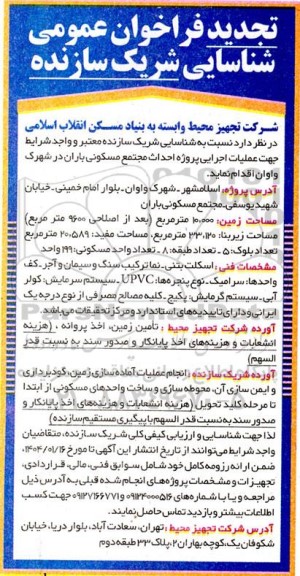 تجدید فراخوان عمومی
شناسایی شریک سازنده
شرکت تجهیز محیط وابسته به بنیاد مسکن انقلاب اسلامی
در نظر دارد نسبت به شناسایی شریک سازنده معتبر و واجد شرایط
جهت عملیات اجرایی پروژه احداث مجتمع مسکونی باران در شهرک
واوان اقدام نماید
آدرس پروژه: اسلامشهر ـ شهرک واوان ـ بلوار امام خمینی ـ خیابان
شهید یوسفی ـ مجتمع مسکونی باران
مساحت زمین: ۱۰,۰۰۰ مترمربع (بعد از اصلاحی ۹۶۰۰ متر مربع)
مساحت زیربنا: ۳۳,۱۲۰ مترمربع ـ مساحت مفید: ۲۰,۵۸۹ مترمربع
تعداد بلوک: ۵ ـ تعداد طبقه: ۸ ـ تعداد واحد مسکونی: ۱۹۹ واحد
مشخصات فنی: اسکلت بتنی ـ نما ترکیب سنگ و سیمان و آجر ـ کف
واحدها: سرامیک ـ نوع پنجره‌ها: UPVC ـ سیستم سرمایش: کولر
آبی ـ سیستم گرمایش: پکیج ـ کلیه مصالح مصرفی از نوع درجه یک
ایرانی و دارای تاییدیه‌های استاندارد و مرکز تحقیقات می باشد
آورده شرکت تجهیز محیط: تأمین زمین، اخذ پروانه، (هزینه
انشعابات و هزینه‌های اخذ پایانکار و صدور سند به نسبت قدر
السهم)
آورده شریک سازنده: انجام عملیات آماده سازی زمین، گودبرداری
و ایمن سازی آن، محوطه سازی و ساخت واحدهای مسکونی از ابتدا
تا مرحله کلید تحویل (هزینه انشعابات و هزینه‌های اخذ پایانکار و
صدور سند به نسبت قدر السهم با پیگیری مستقیم سازنده)
لذا جهت شناسایی و ارزیابی کیفی کلی شریک سازنده، متقاضیان
واجد شرایط می‌توانند از تاریخ انتشار این آگهی تا مورخ ۱۴۰۴/۰۱/۱۶،
ضمن ارائه رزومه کامل خود شامل سوابق فنی، مالی، قراردادی،
تجهیزات و مشخصات پروژه‌های انجام شده قبلی به آدرس ذیل
مراجعه و یا با شماره‌های ۰۹۱۲۴۰۰۰۰۵۶ و ۰۹۱۲۷۱۶۶۷۷۱ جهت کسب
اطلاعات بیشتر و بازدید تماس حاصل نمایند.
آدرس شرکت تجهیز محیط: تهران، سعادت آباد، بلوار دریا، خیابان
شکوفان یک، کوچه بهاران ۲، پلاک ۳۳ طبقه دوم